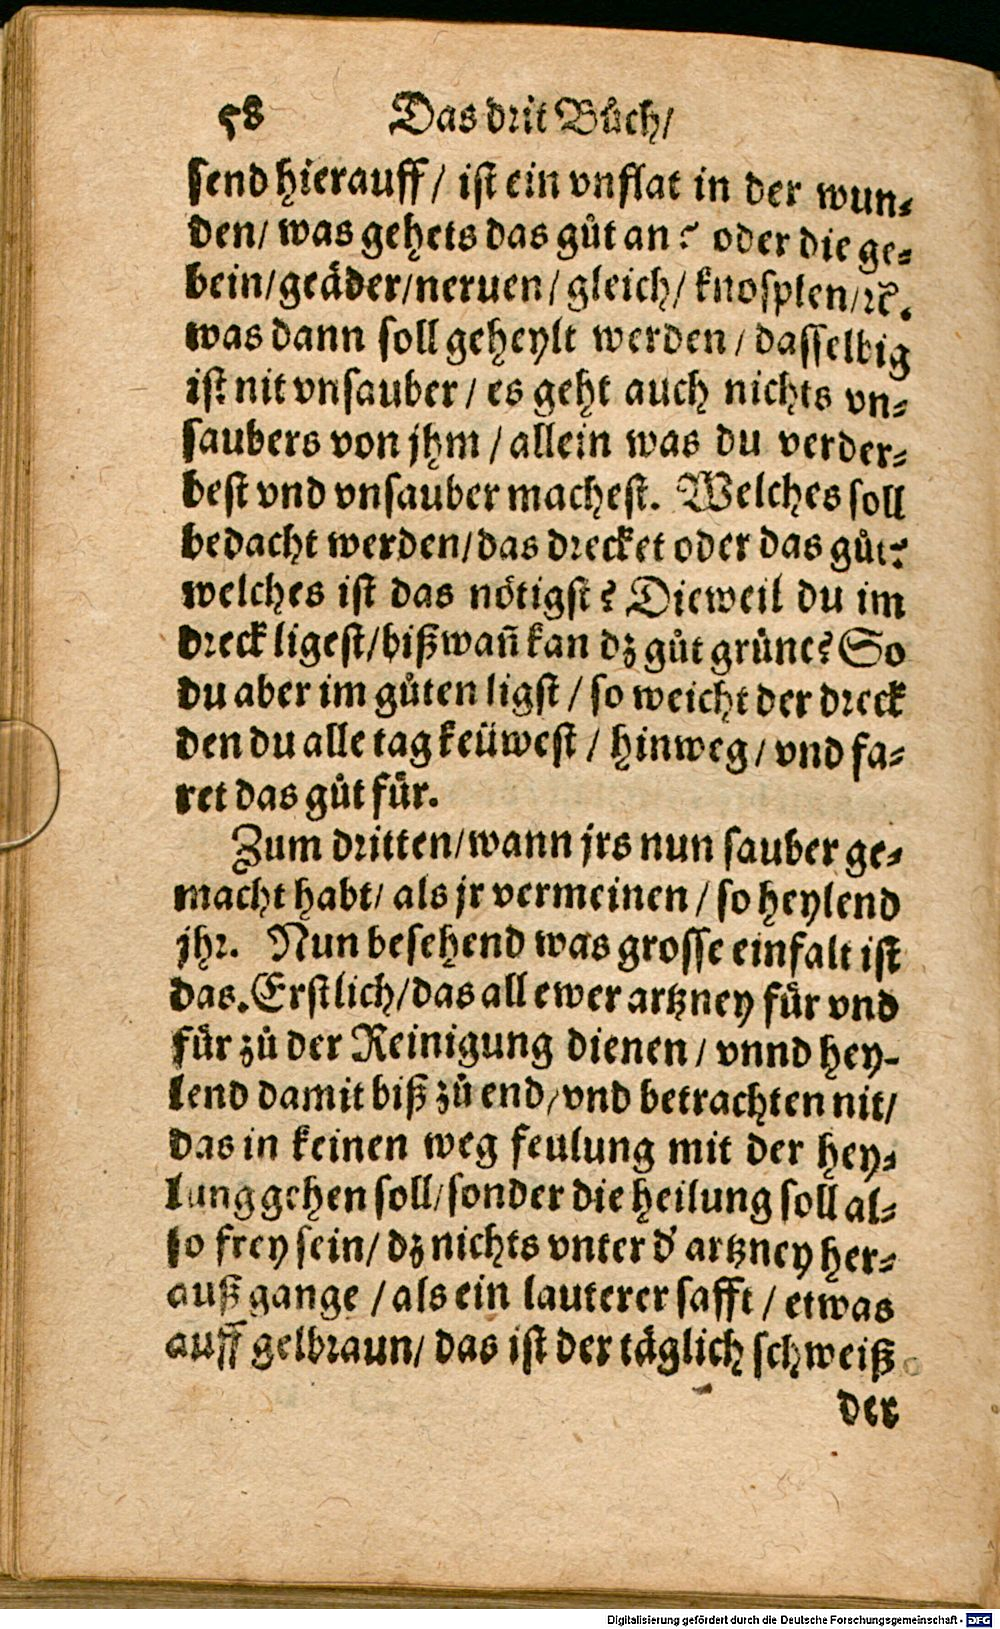 58 Das drit Bůch/
send hierauff/ ist ein vnflat in der wun-
den/ was gehets das gůt an? oder die ge-
bein/geäder/neruen/ gleich/ knosplen/ꝛc.
was dann soll geheylt werden/ dasselbig
ist nit vnsauber/ es geht auch nichts vn-
saubers von jhm/ allein was du verder-
best vnd vnsauber machest. Welches soll
bedacht werden/das drecket oder das gůt?
welches ist das nötigst? Dieweil du im
dreck ligest/biß wañ kan dz gůt grüne? So
du aber im gůten ligst/ so weicht der dreck
den du alle tag keüwest/ hinweg/ vnd fa-
ret das gůt für.
Zum dritten/wann jrs nun sauber ge-
macht habt/ als jr vermeinen/ so heylend
jhr. Nun besehend was grosse einfalt ist
das. Erstlich/das all ewer artzney für vnd
für zů der Reinigung dienen/ vnnd hey-
lend damit biß zů end/vnd betrachten nit/
das in keinen weg feulung mit der hey-
lung gehen soll/sonder die heilung soll al-
so frey sein/ dz nichts vnter d' artzney her-
auß gange/ als ein lauterer safft/ etwas
auff gelbraun/ das ist der täglich schweiß
der
Digitalisierung gefördert durch die Deutsche Forschungsgemeinschaft - DFG